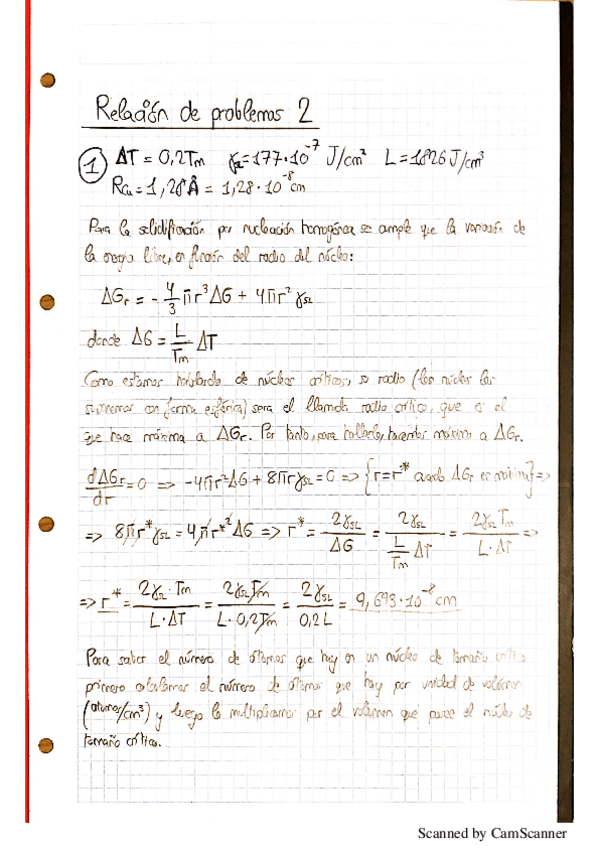 Relación de problemas 2
1 ΔT = 0,2Tm γSL = 177·10^-7 J/cm² L = 1826 J/cm³
RCu = 1,28 Å = 1,28·10^-8 cm
Para la solidificación por nucleación homogénea se cumple que la variación de
la energía libre, en función del radio del núcleo:
ΔGr = - 4/3 πr³ ΔG + 4πr² γSL
donde ΔG = L/Tm ΔT
Como estamos hablando de núcleos críticos, su radio (los núcleos los
suponemos con forma esférica) será el llamado radio crítico, que es el
que hace máxima a ΔGr. Por tanto, para hallarlo, haremos máximo a ΔGr.
dΔGr/dr = 0 => -4πr²ΔG + 8πrγSL = 0 => {r = r* cuando ΔGr es máximo} =>
=> 8πr*γSL = 4πr*²ΔG => r* = 2γSL/ΔG = 2γSL/(L/Tm ΔT) = 2γSL Tm/(L·ΔT) =>
=> r* = 2γSL·Tm/(L·ΔT) = 2γSL Tm/(L·0,2Tm) = 2γSL/(0,2L) = 9,693·10^-8 cm
Para saber el número de átomos que hay en un núcleo de tamaño crítico
primero calculamos el número de átomos que hay por unidad de volumen
(átomos/cm³) y luego lo multiplicamos por el volumen que posee el núcleo de
tamaño crítico.
Scanned by CamScanner